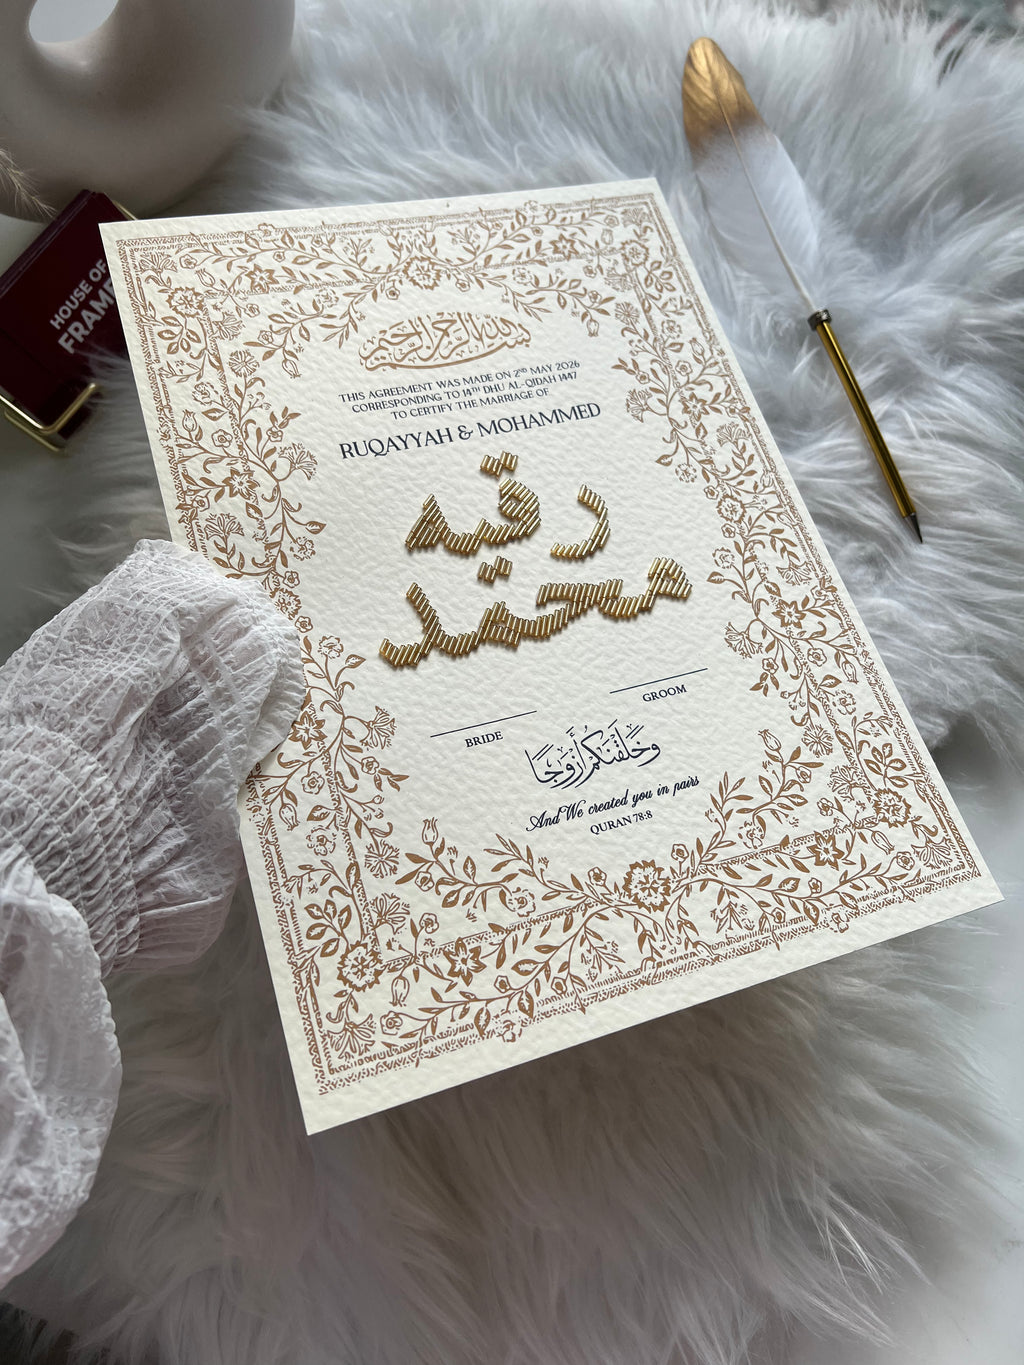 HOUSE OF
FRAME
بسم الله الرحمن الرحيم
THIS AGREEMENT WAS MADE ON 2ND MAY 2026
CORRESPONDING TO 14TH DHU AL-QIDAH 1447
TO CERTIFY THE MARRIAGE OF
RUQAYYAH & MOHAMMED
رقيه
محمد
BRIDE
GROOM
وَخَلَقْنَاكُمْ أَزْوَاجًا
And We created you in pairs
QURAN 78:8